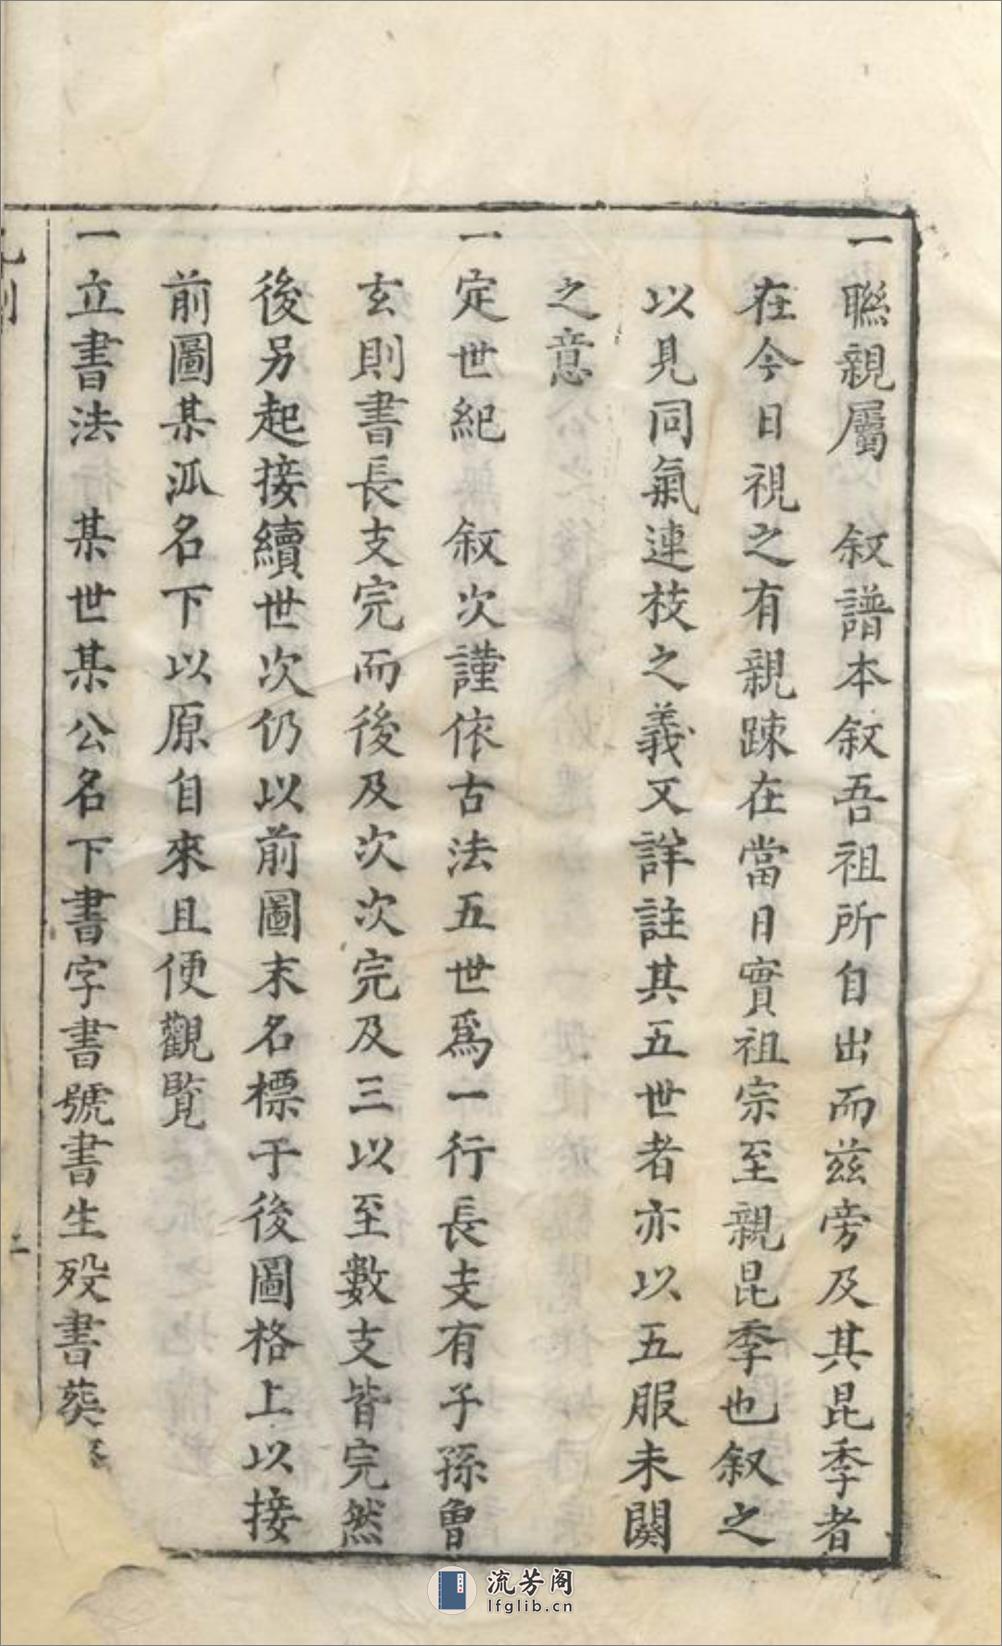 一聯親屬　叙譜本叙吾祖所自出而兹旁及其昆季者
在今日視之有親踈在當日實祖宗至親昆季也叙之
以見同氣連枝之義又詳註其五世者亦以五服未闋
之意
一定世紀　叙次謹依古法五世爲一行長支有子孫曾
玄則書長支完而後及次次完及三以至數支皆完然
後另起接續世次仍以前圖末名標于後圖格上以接
前圖某泒名下以原自來且便觀覧
一立書法　某世某公名下書字書號書生殁書葵
上
流芳阁
lfglib.cn